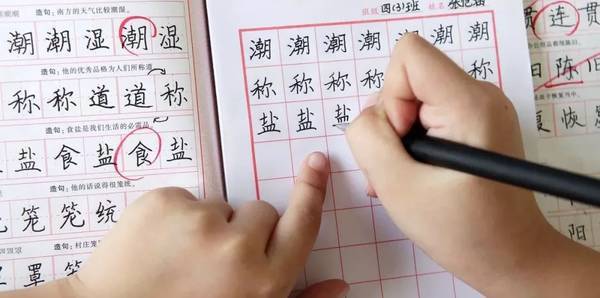 造句：南方的天气比较潮湿。
潮潮湿潮湿
造句：他的优秀品格为人们所称道
称称道道称
造句：食盐是我们生活的必需品
盐食盐食盐
造句：他的话说得很笼统。
笼笼统
造句：村庄笼
罩罩
班级 四(3)班 姓名
潮潮潮潮潮潮潮
称称称称称
盐盐盐
连贯
日陈旧
复恢
阳
阳